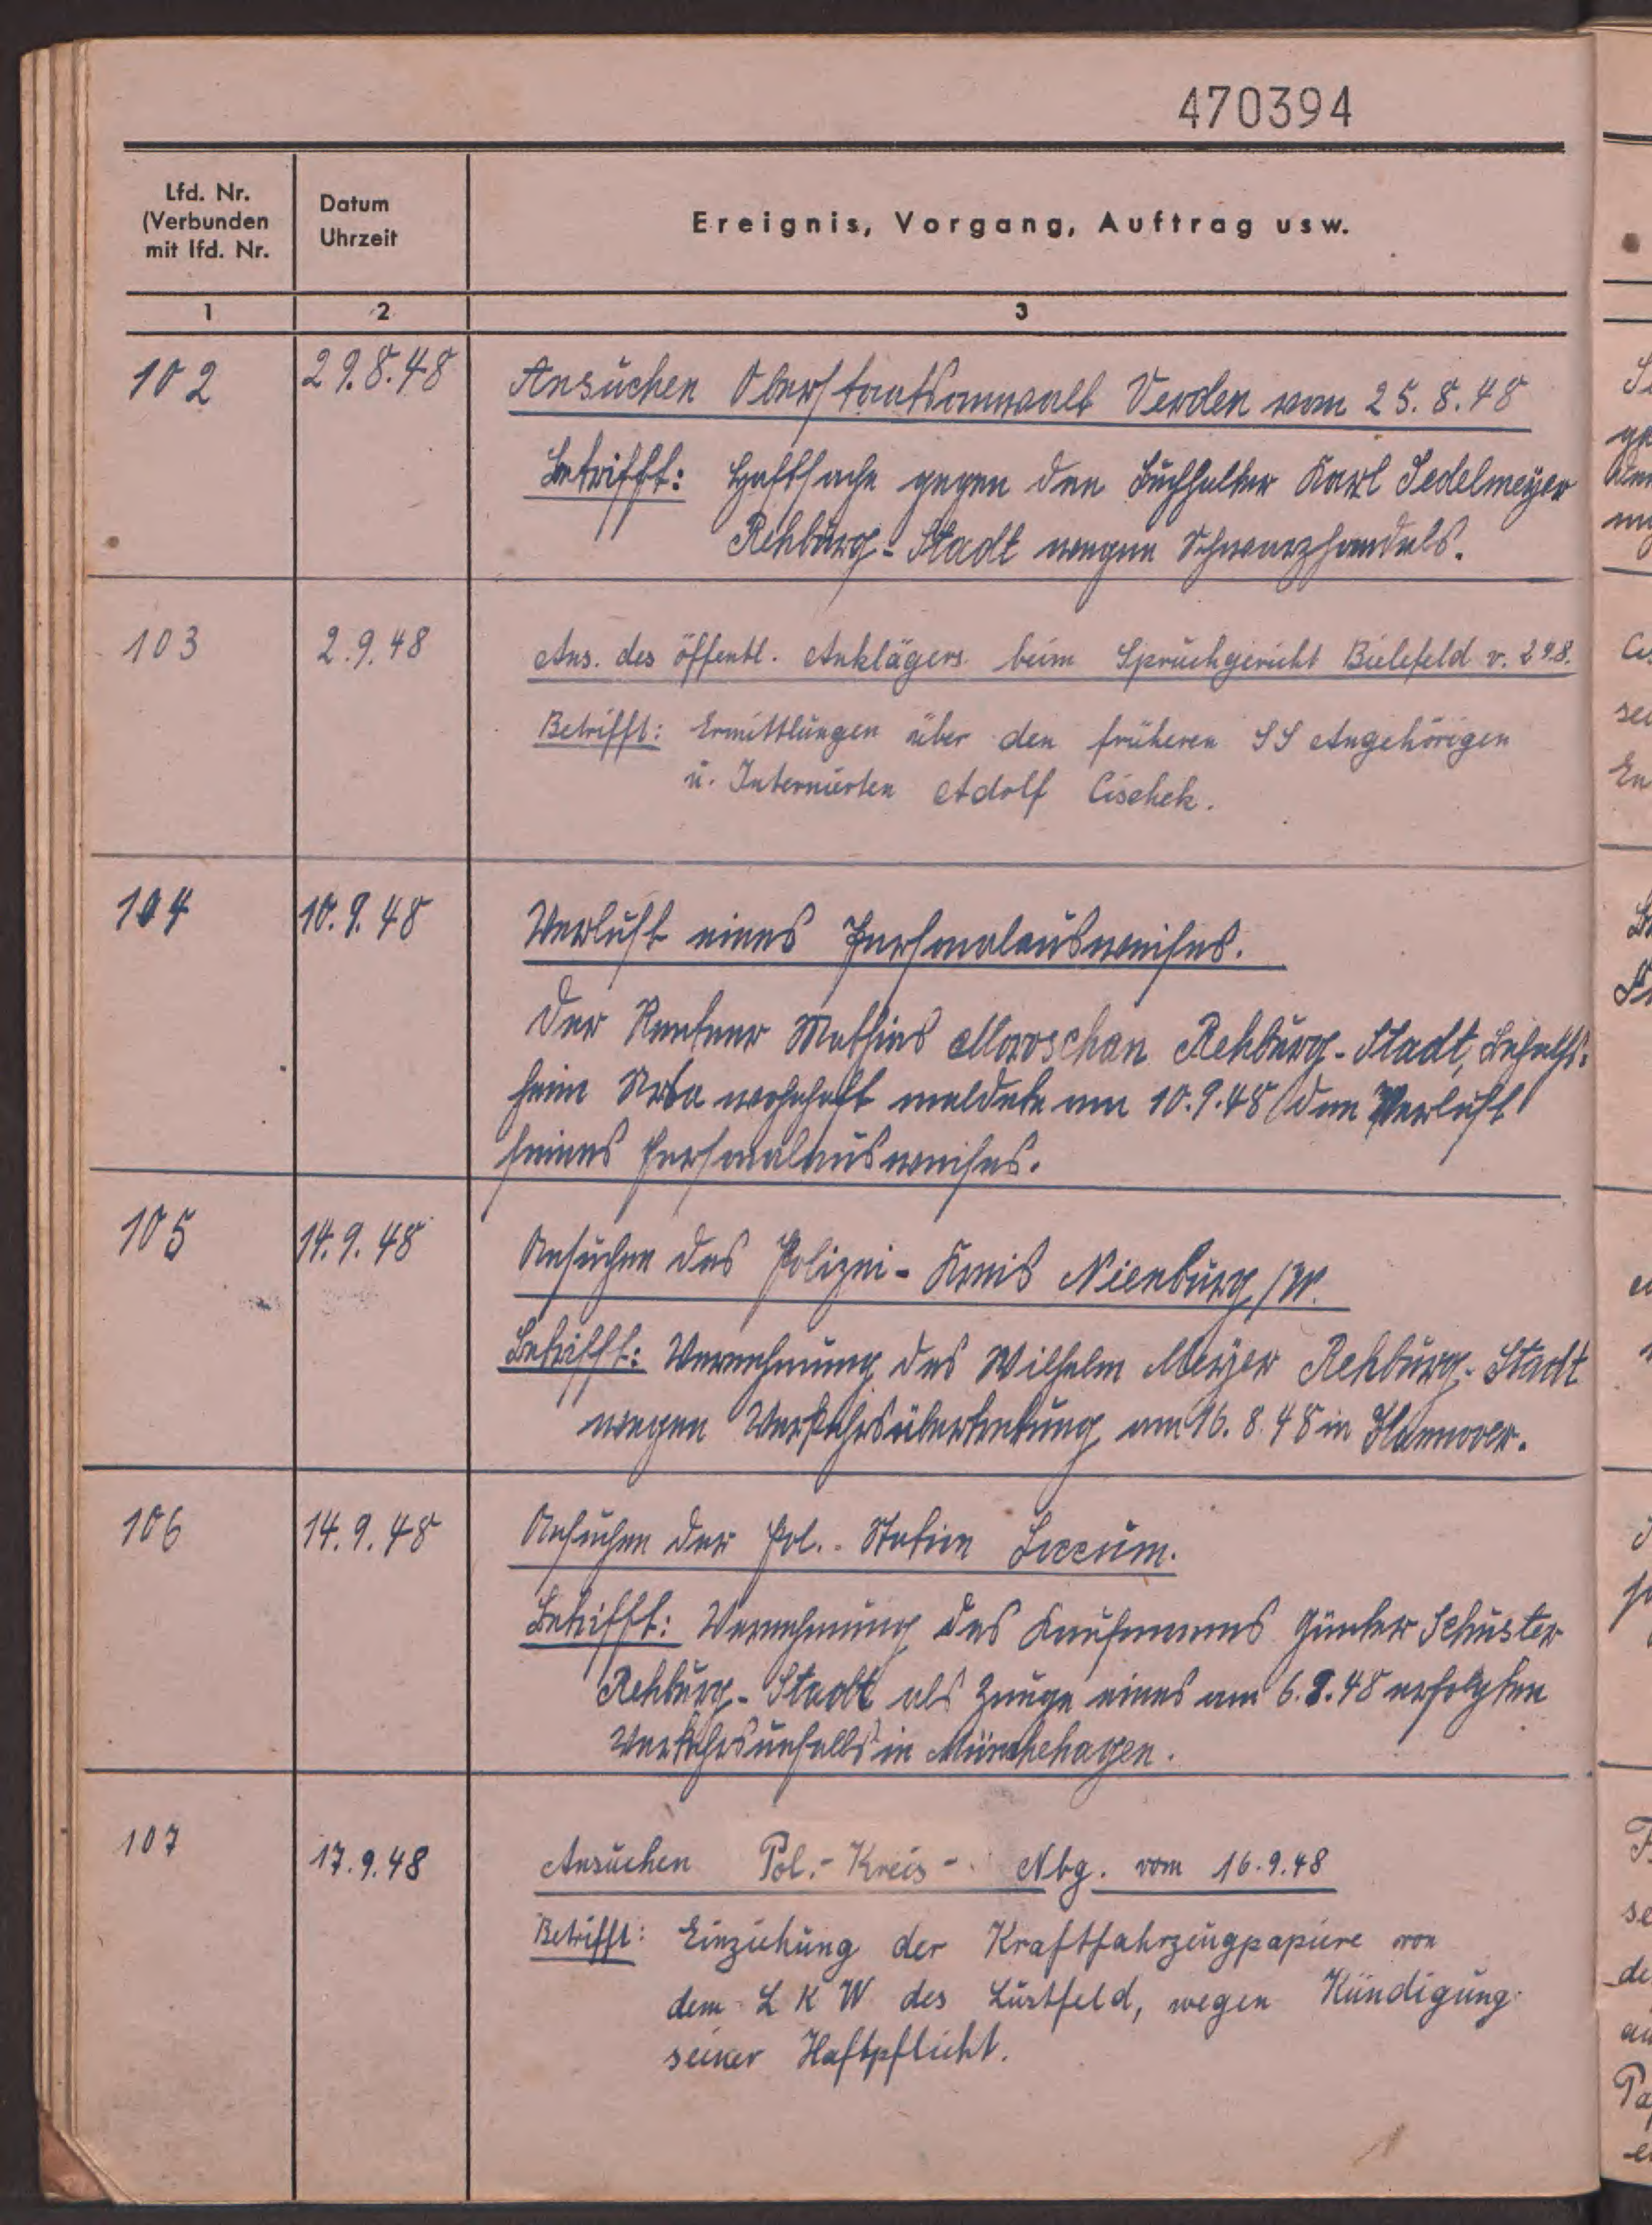 470394
Lfd. Nr.
(Verbunden
mit lfd. Nr.
Datum
Uhrzeit
Ereignis, Vorgang, Auftrag usw.
1 2 3
102 29.8.48 Ansuchen Oberstaatsanwalt Verden vom 25.8.48
Betrifft: Haftsache gegen den Buchhalter Karl Sedelmeyer
Rehburg-Stadt wegen Schwarzhandels.
103 2.9.48 Ans. des öffentl. Anklägers beim Spruchgericht Bielefeld v.
Betrifft: Ermittlungen über den früheren SS Angehörigen
u. Internierten Adolf Cischek.
104 10.9.48 Verlust eines Personalausweises.
Der Rentner Mathias Moroschan Rehburg-Stadt, Behelfs-
heim wohnhaft meldete am 10.9.48 den Verlust
seines Personalausweises.
105 14.9.48 Ansuchen des Polizei-Kreis Nienburg/W.
Betrifft: Vernehmung des Wilhelm Meyer Rehburg-Stadt
wegen Verkehrsübertretung am 16.8.48 in Hannover.
106 14.9.48 Ansuchen der Pol.-Station Loccum.
Betrifft: Vernehmung des Kaufmanns Günter Schuster
Rehburg-Stadt als Zeuge eines am erfolgten
Verkehrsunfalls in Münchehagen.
107 17.9.48 Ansuchen Pol.-Kreis- Nbg. vom 16.9.48
Betrifft: Einziehung der Kraftfahrzeugpapiere von
dem LKW des Lustfeld, wegen Kündigung
seiner Haftpflicht.